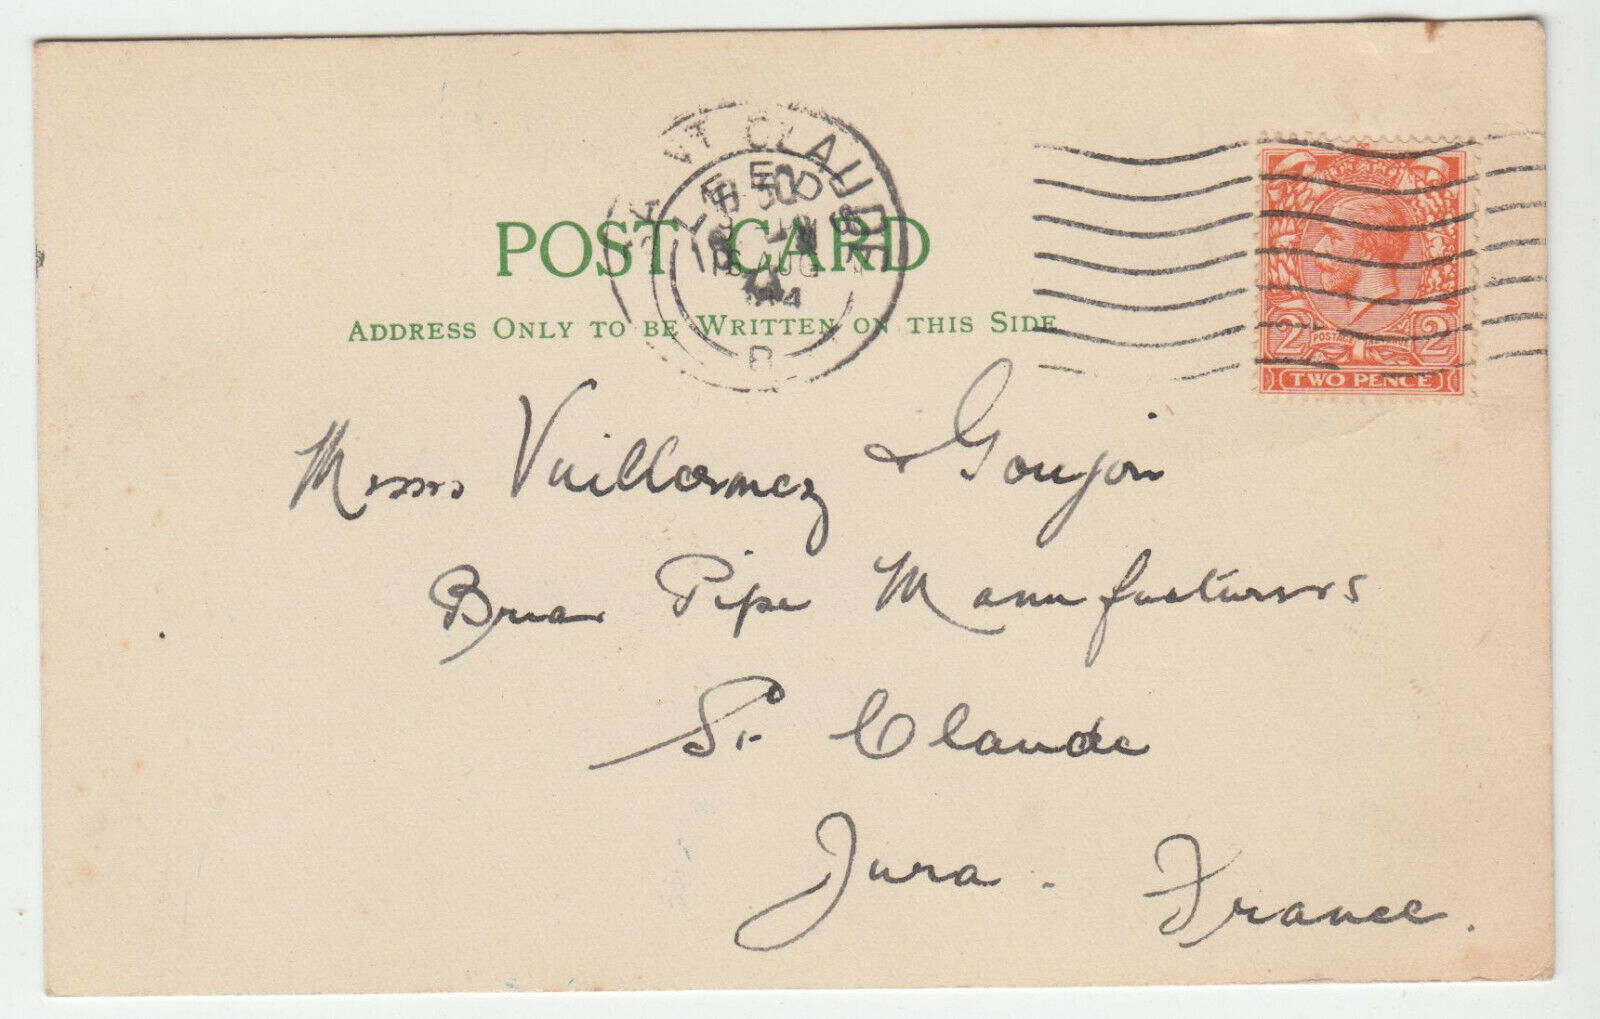 POST CARD
ADDRESS ONLY TO BE WRITTEN ON THIS SIDE
CLAUDE
LEEDS
AUG
POSTAGE REVENUE
2 2
TWO PENCE
Messrs Vuillermoz & Goujon
Briar Pipe Manufacturers
St. Claude
Jura.
France.